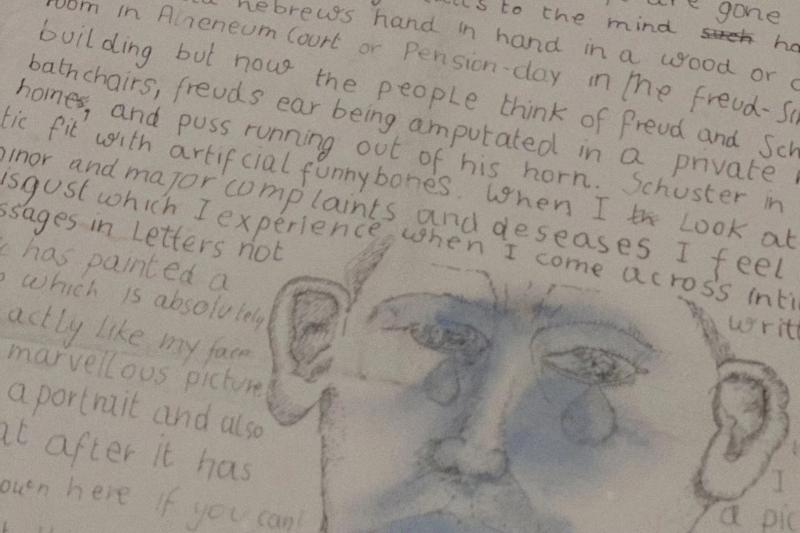 are gone
hebrews hand in hand in a wood or
room in Atheneum Court or Pension-day in the freud-Sch
building but now the people think of freud and Sch
bathchairs, freuds ear being amputated in a private
homes, and puss running out of his horn. Schuster in
tic fit with artificial funnybones. When I look at
minor and major complaints and deseases I feel
isgust which I experience when I come across inti
ssages in Letters not
writt
has painted a
which is absolutely
actly like my face
marvellous picture
a portrait and also
at after it has
own here if you can!
I
a pic